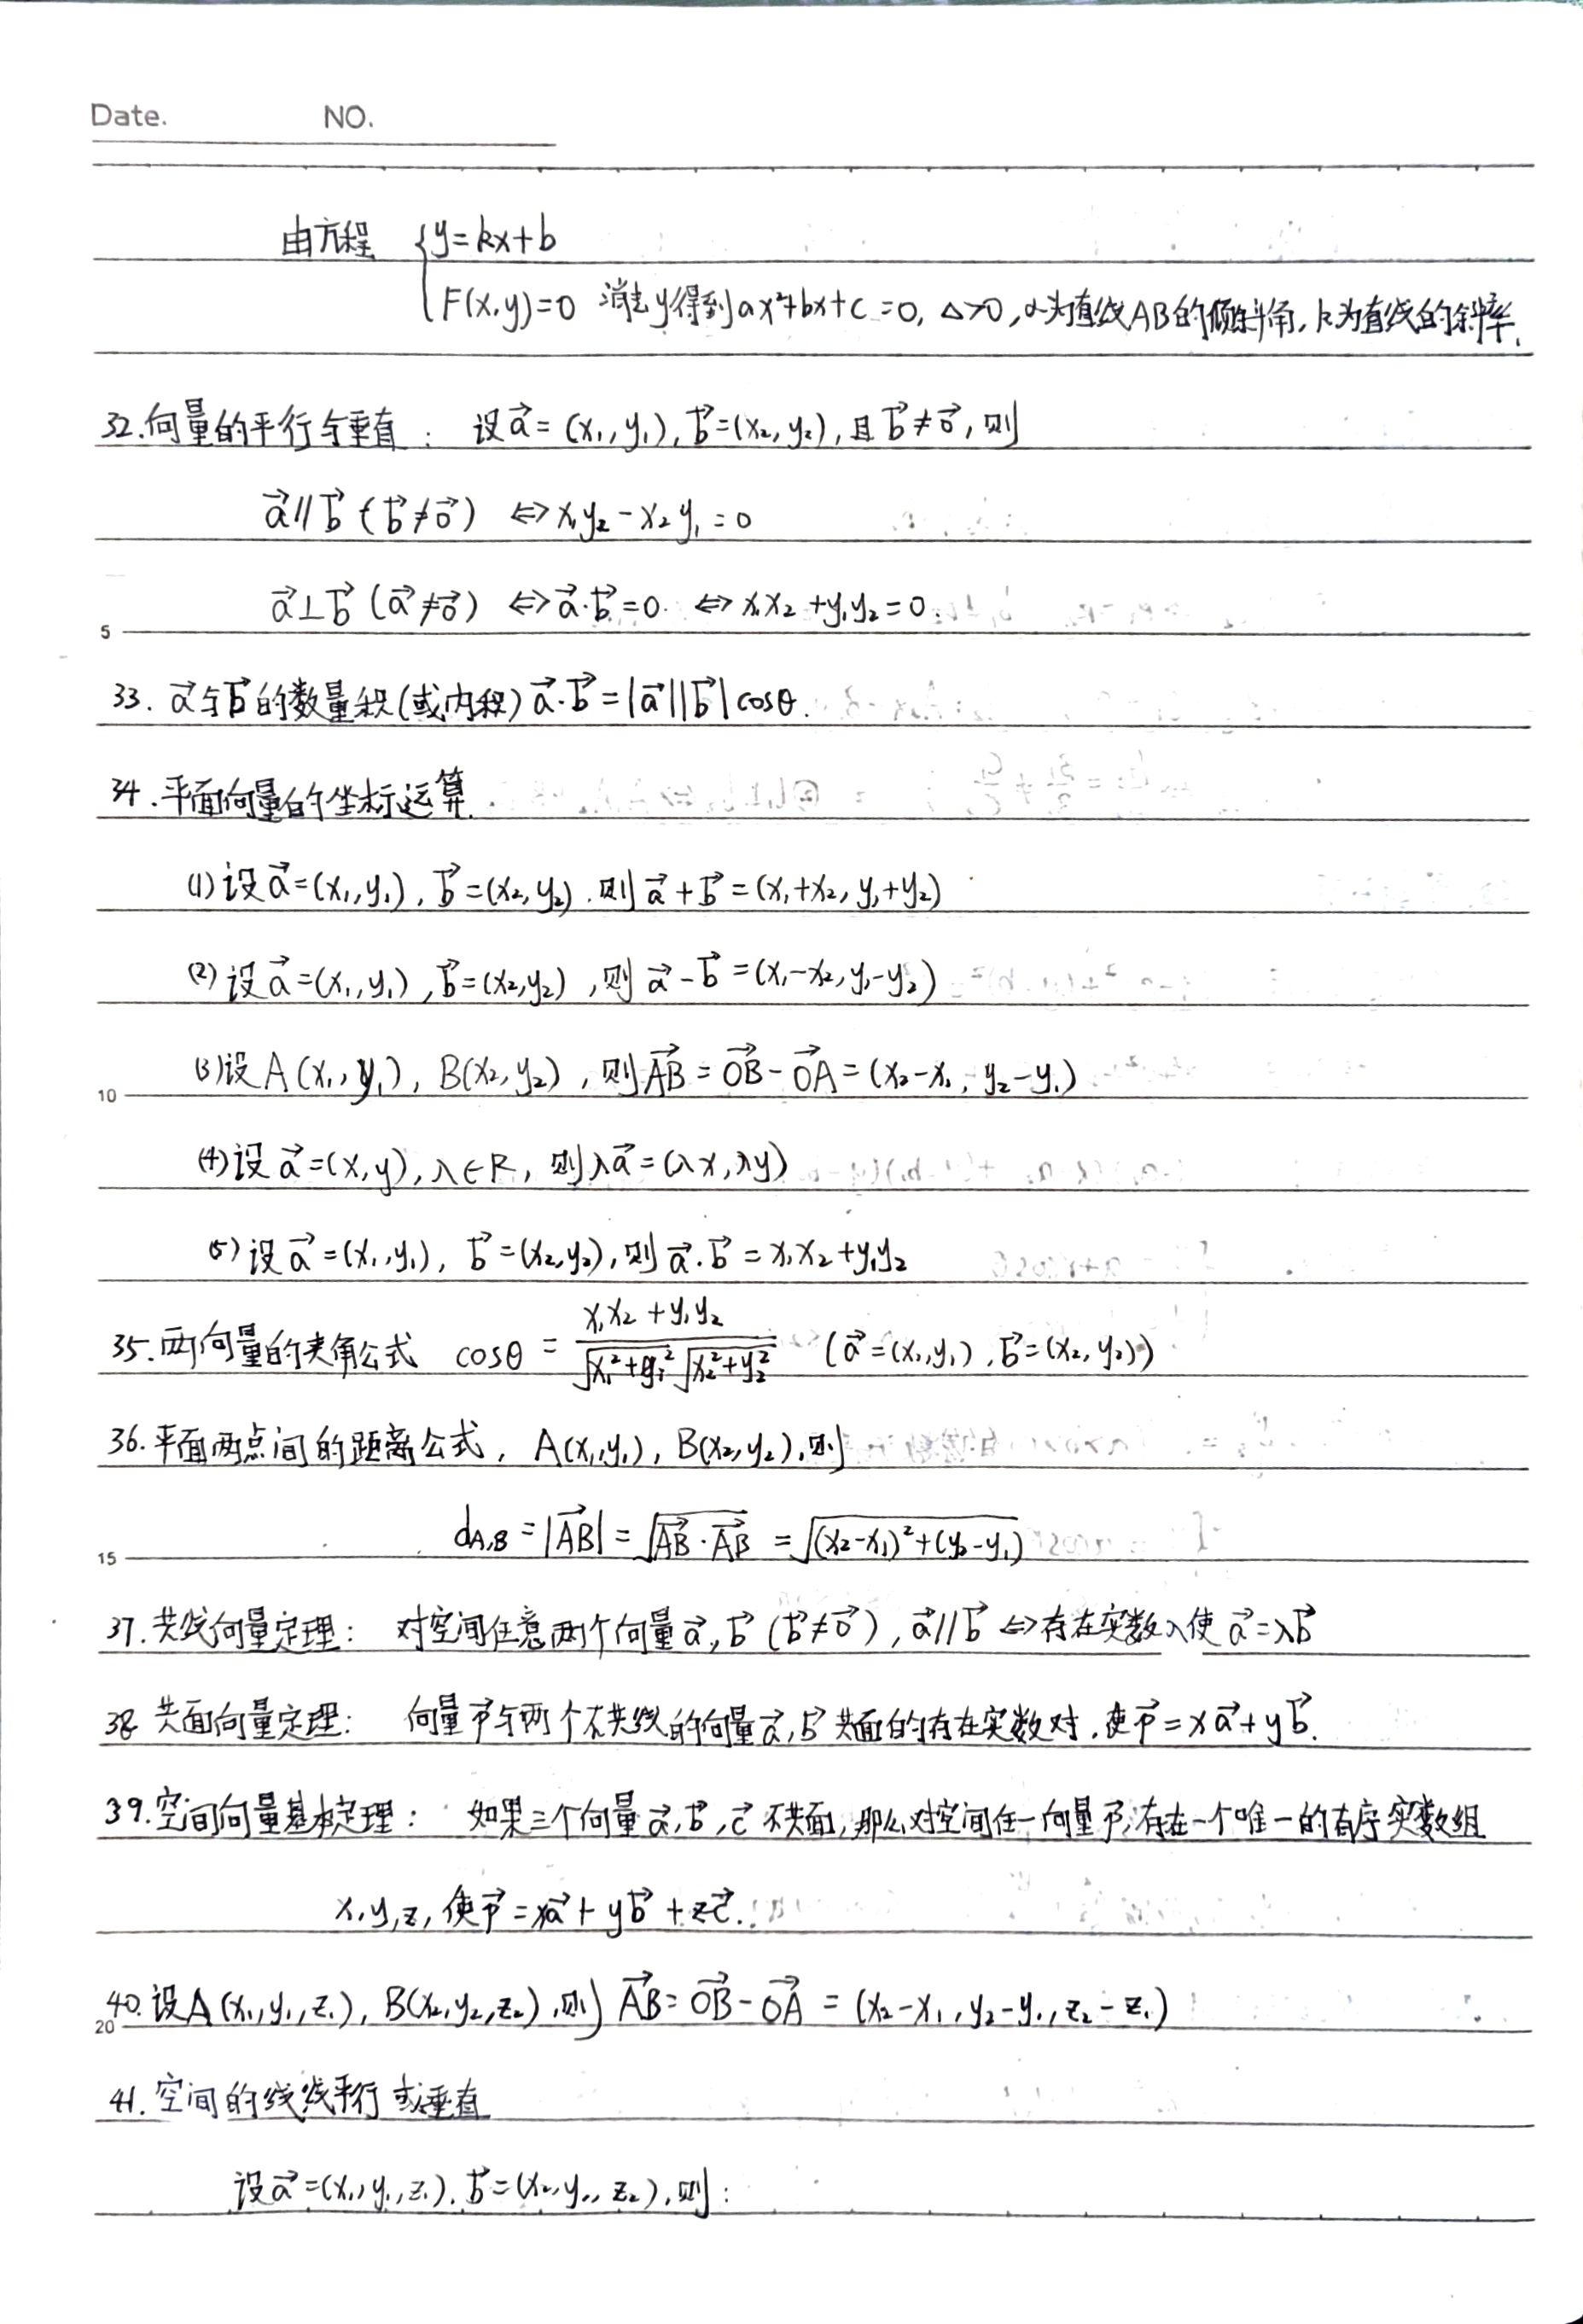 Date. NO.
由方程 { y=kx+b
F(x,y)=0 消去y得到ax²+bx+c=0, Δ>0, α为直线AB的倾斜角, k为直线的斜率.
32.向量的平行与垂直: 设a⃗=(x₁,y₁), b⃗=(x₂,y₂), 且b⃗≠0⃗, 则
a⃗∥b⃗ (b⃗≠0⃗) ⇔ x₁y₂-x₂y₁=0
5 a⃗⊥b⃗ (a⃗≠0⃗) ⇔ a⃗·b⃗=0. ⇔ x₁x₂+y₁y₂=0.
33. a⃗与b⃗的数量积(或内积) a⃗·b⃗=|a⃗||b⃗|cosθ.
34.平面向量的坐标运算.
(1)设a⃗=(x₁,y₁), b⃗=(x₂,y₂).则 a⃗+b⃗=(x₁+x₂, y₁+y₂)
(2)设a⃗=(x₁,y₁), b⃗=(x₂,y₂), 则 a⃗-b⃗=(x₁-x₂, y₁-y₂)
10 (3)设A(x₁,y₁), B(x₂,y₂), 则AB⃗=OB⃗-OA⃗=(x₂-x₁, y₂-y₁)
(4)设a⃗=(x,y), λ∈R, 则λa⃗=(λx,λy)
(5)设a⃗=(x₁,y₁), b⃗=(x₂,y₂), 则a⃗·b⃗=x₁x₂+y₁y₂
35.两向量的夹角公式 cosθ=(x₁x₂+y₁y₂)/(√(x₁²+y₁²)√(x₂²+y₂²)) (a⃗=(x₁,y₁), b⃗=(x₂,y₂))
36.平面两点间的距离公式, A(x₁,y₁), B(x₂,y₂),则
15 dA,B=|AB⃗|=√(AB⃗·AB⃗)=√((x₂-x₁)²+(y₂-y₁))
37.共线向量定理: 对空间任意两个向量a⃗,b⃗ (b⃗≠0⃗), a⃗∥b⃗ ⇔存在实数λ使a⃗=λb⃗
38 共面向量定理: 向量p⃗与两个不共线的向量a⃗,b⃗ 共面的存在实数对,使p⃗=xa⃗+yb⃗.
39.空间向量基本定理: 如果三个向量a⃗,b⃗,c⃗不共面,那么对空间任一向量p⃗,存在一个唯一的有序实数组
x,y,z,使p⃗=xa⃗+yb⃗+zc⃗.
20 40.设A(x₁,y₁,z₁), B(x₂,y₂,z₂),则 AB⃗=OB⃗-OA⃗=(x₂-x₁, y₂-y₁, z₂-z₁)
41.空间的线线平行或垂直
设a⃗=(x₁,y₁,z₁). b⃗=(x₂,y₂,z₂),则: